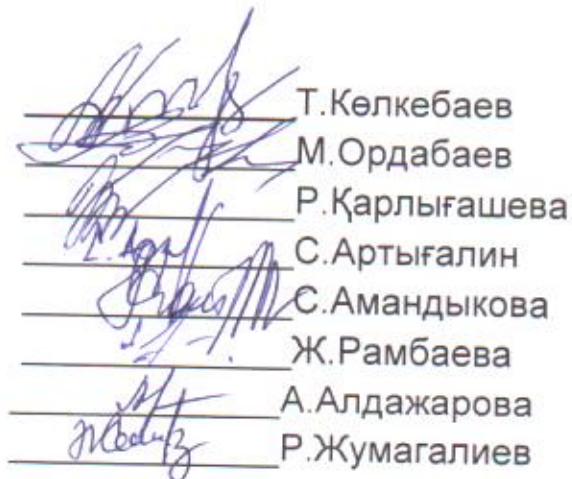 Т.Көлкебаев
М.Ордабаев
Р.Қарлығашева
С.Артығалин
С.Амандыкова
Ж.Рамбаева
А.Алдажарова
Р.Жумагалиев